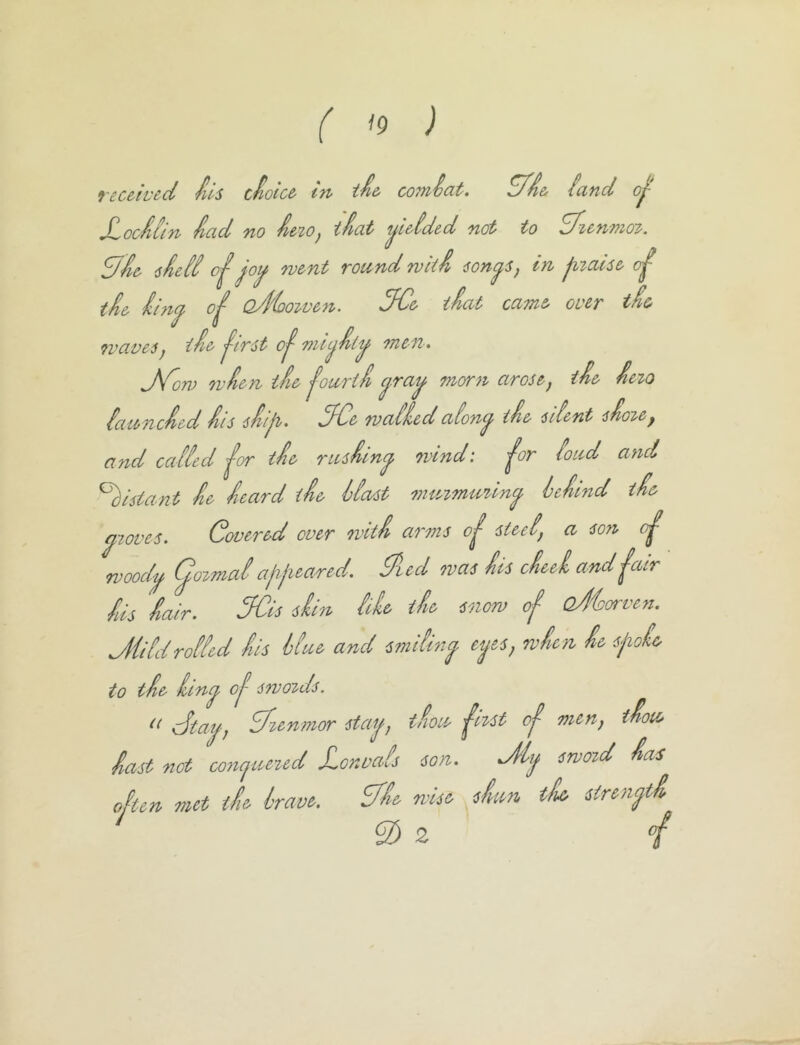 ( 19 )
received his choice in the combat. The land of
Lochlin had no hero, that yielded not to Trenmor.
The shell of joy went round with songs, in praise of
the king of Moorven. He that came over the
waves, the first of mighty men.
Now when the fourth gray morn arose, the hero
launched his ship. He walked along the silent shore,
and called for the rushing wind: for loud and
distant he heard the blast murmuring behind the
groves. Covered over with arms of steel, a son of
woody Gormal appeared. Red was his cheek and fair
his hair. His skin like the snow of Moorven.
Mild rolled his blue and smiling eyes, when he spoke
to the king of swords.
" Stay, Trenmor stay, thou first of men, thou
hast not conquered Lonvals son. My sword has
often met the brave. The wise shun the strength
D 2 of